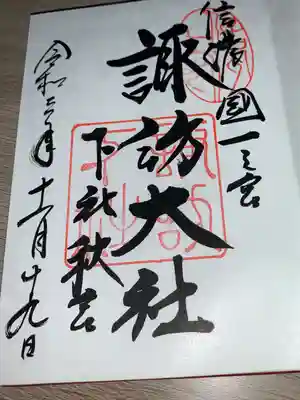 信濃國一之宮
諏訪大社
下社秋宮
令和六年十一月廿九日